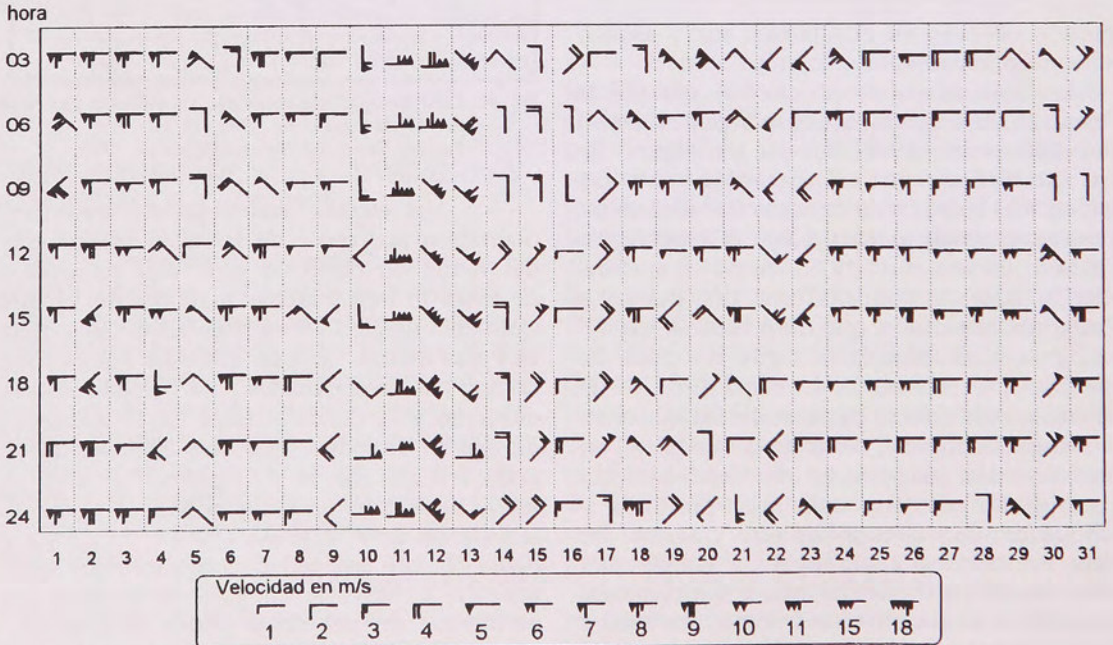 hora
03
06
09
12
15
18
21
24
1 2 3 4 5 6 7 8 9 10 11 12 13 14 15 16 17 18 19 20 21 22 23 24 25 26 27 28 29 30 31
Velocidad en m/s
1 2 3 4 5 6 7 8 9 10 11 15 18